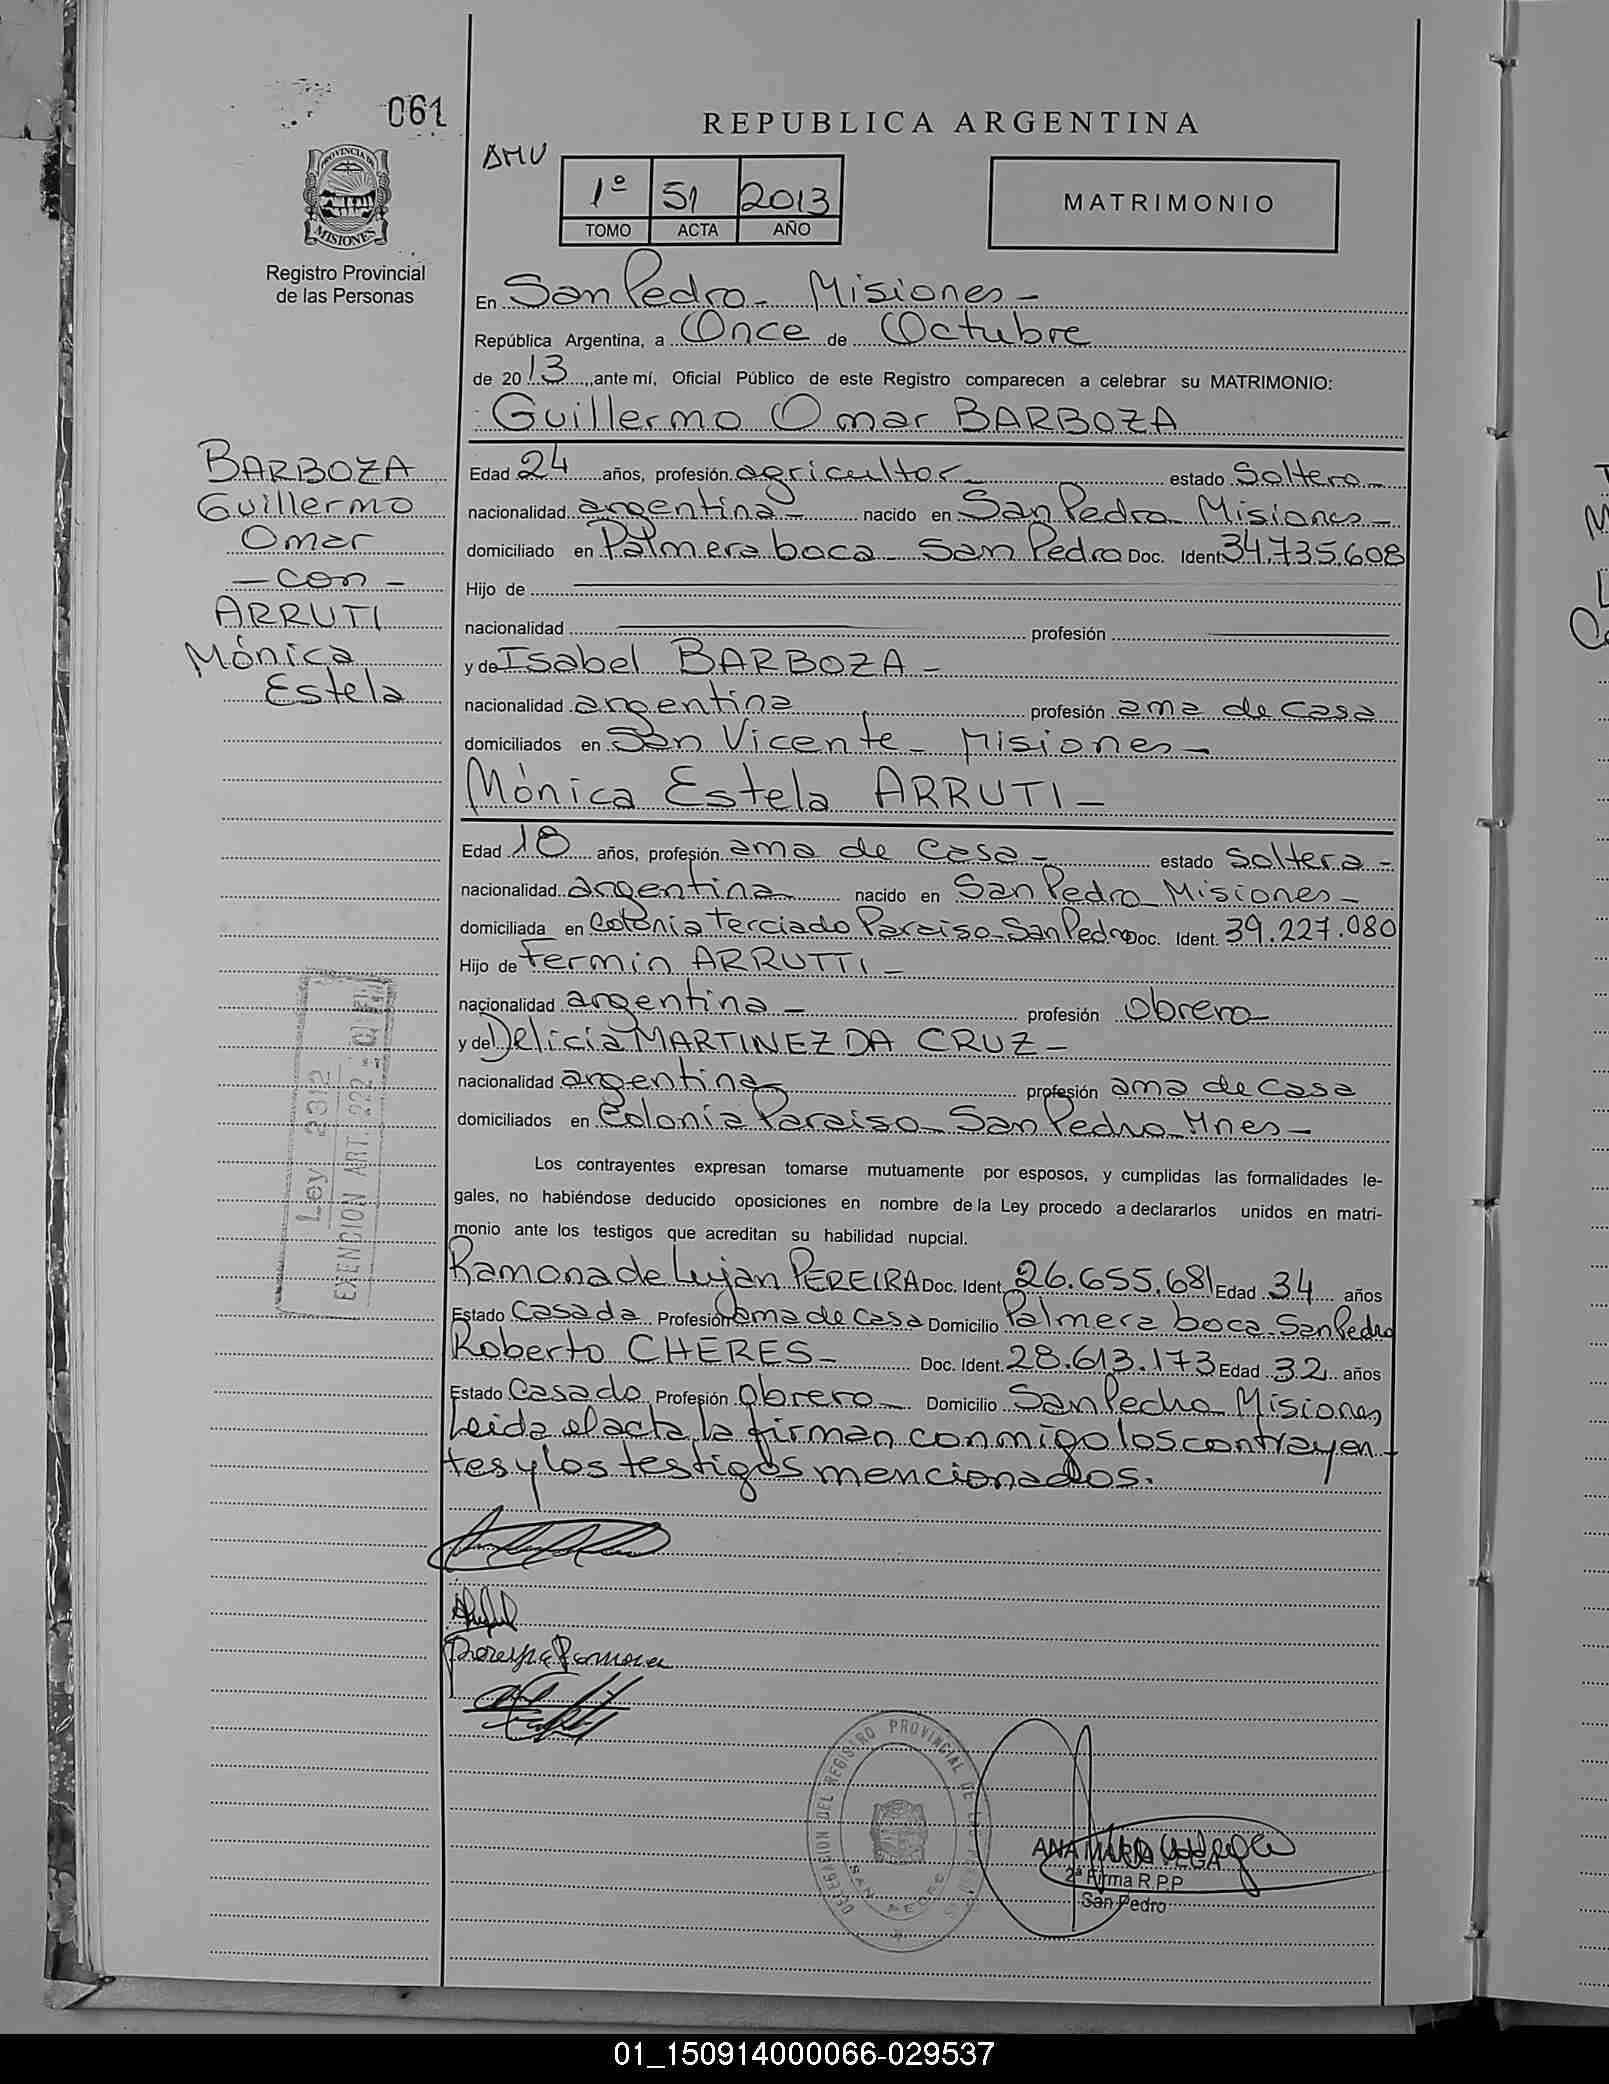 061
REPUBLICA ARGENTINA
AMV
1º 51 2013
TOMO ACTA AÑO
MATRIMONIO
PROVINCIA DE
MISIONES
Registro Provincial
de las Personas
En San Pedro - Misiones -
República Argentina, a Once de Octubre
de 2013, ante mí, Oficial Público de este Registro comparecen a celebrar su MATRIMONIO:
Guillermo Omar BARBOZA
BARBOZA
Guillermo
Omar
- con -
ARRUTI
Mónica
Estela
Edad 24 años, profesión agricultor - estado Soltero -
nacionalidad argentina - nacido en San Pedro Misiones -
domiciliado en Palmera boca San Pedro Doc. Ident. 34.735.608
Hijo de
nacionalidad profesión
y de Isabel BARBOZA -
nacionalidad argentina profesión ama de casa
domiciliados en San Vicente - Misiones -
Mónica Estela ARRUTI -
Edad 18 años, profesión ama de casa - estado soltera -
nacionalidad argentina nacido en San Pedro Misiones -
domiciliada en Colonia Terciado Paraiso - San Pedro Doc. Ident. 39.227.080
Hijo de Fermin ARRUTTI -
nacionalidad argentina - profesión obrero -
y de Delicia MARTINEZ DA CRUZ -
nacionalidad argentina profesión ama de casa
domiciliados en Colonia Paraiso - San Pedro - Mnes -
Ley 2312
EXENCION ART. 222
Los contrayentes expresan tomarse mutuamente por esposos, y cumplidas las formalidades le-
gales, no habiéndose deducido oposiciones en nombre de la Ley procedo a declararlos unidos en matri-
monio ante los testigos que acreditan su habilidad nupcial.
Ramona de Lujan PEREIRA Doc. Ident. 26.655.681 Edad 34 años
Estado Casada Profesión ama de casa Domicilio Palmera boca - San Pedro
Roberto CHERES - Doc. Ident. 28.613.173 Edad 32 años
Estado Casado Profesión obrero - Domicilio San Pedro Misiones
Leida el acta, la firman conmigo los contrayen-
tes y los testigos mencionados.
DELEGACION DEL REGISTRO PROVINCIAL DE LAS
SAN PEDRO
ANA MARIA VEGA
2ª Firma R.P.P
San Pedro
01_150914000066-029537